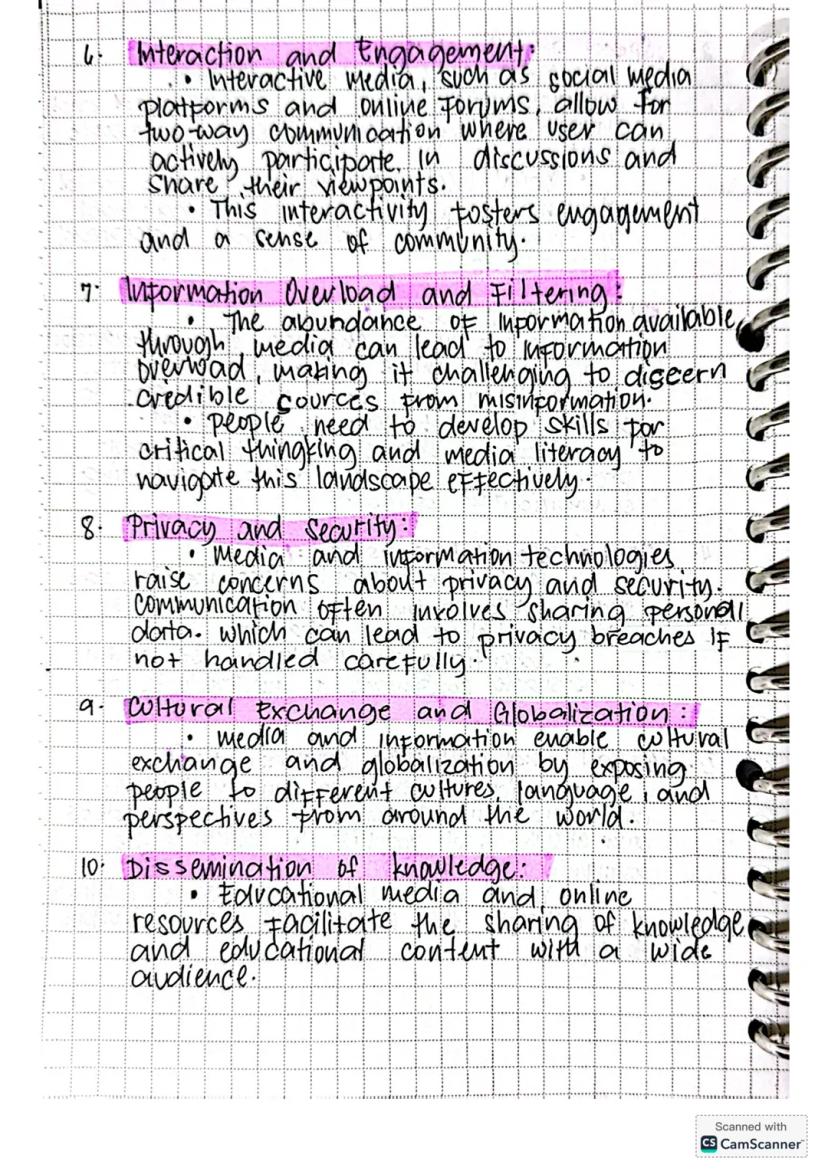 6. Interaction and Engagement:
• Interactive media, such as social media
platforms and online forums, allow for
two-way communication where user can
actively participate in discussions and
share their viewpoints.
• This interactivity fosters engagement
and a sense of community.
7. Information Overload and Filtering:
• The abundance of information available
through media can lead to information
overload, making it challenging to discern
credible sources from misinformation.
• people need to develop skills for
critical thingking and media literacy to
navigate this landscape effectively.
8. Privacy and Security:
• Media and information technologies
raise concerns about privacy and security.
Communication often involves sharing personal
data. which can lead to privacy breaches if
not handled carefully.
9. Cultural Exchange and Globalization:
• media and information enable cultural
exchange and globalization by exposing
people to different cultures, language, and
perspectives from around the world.
10. Dissemination of knowledge:
• Educational media and online
resources facilitate the sharing of knowledge
and educational content with a wide
audience.
Scanned with
CS CamScanner